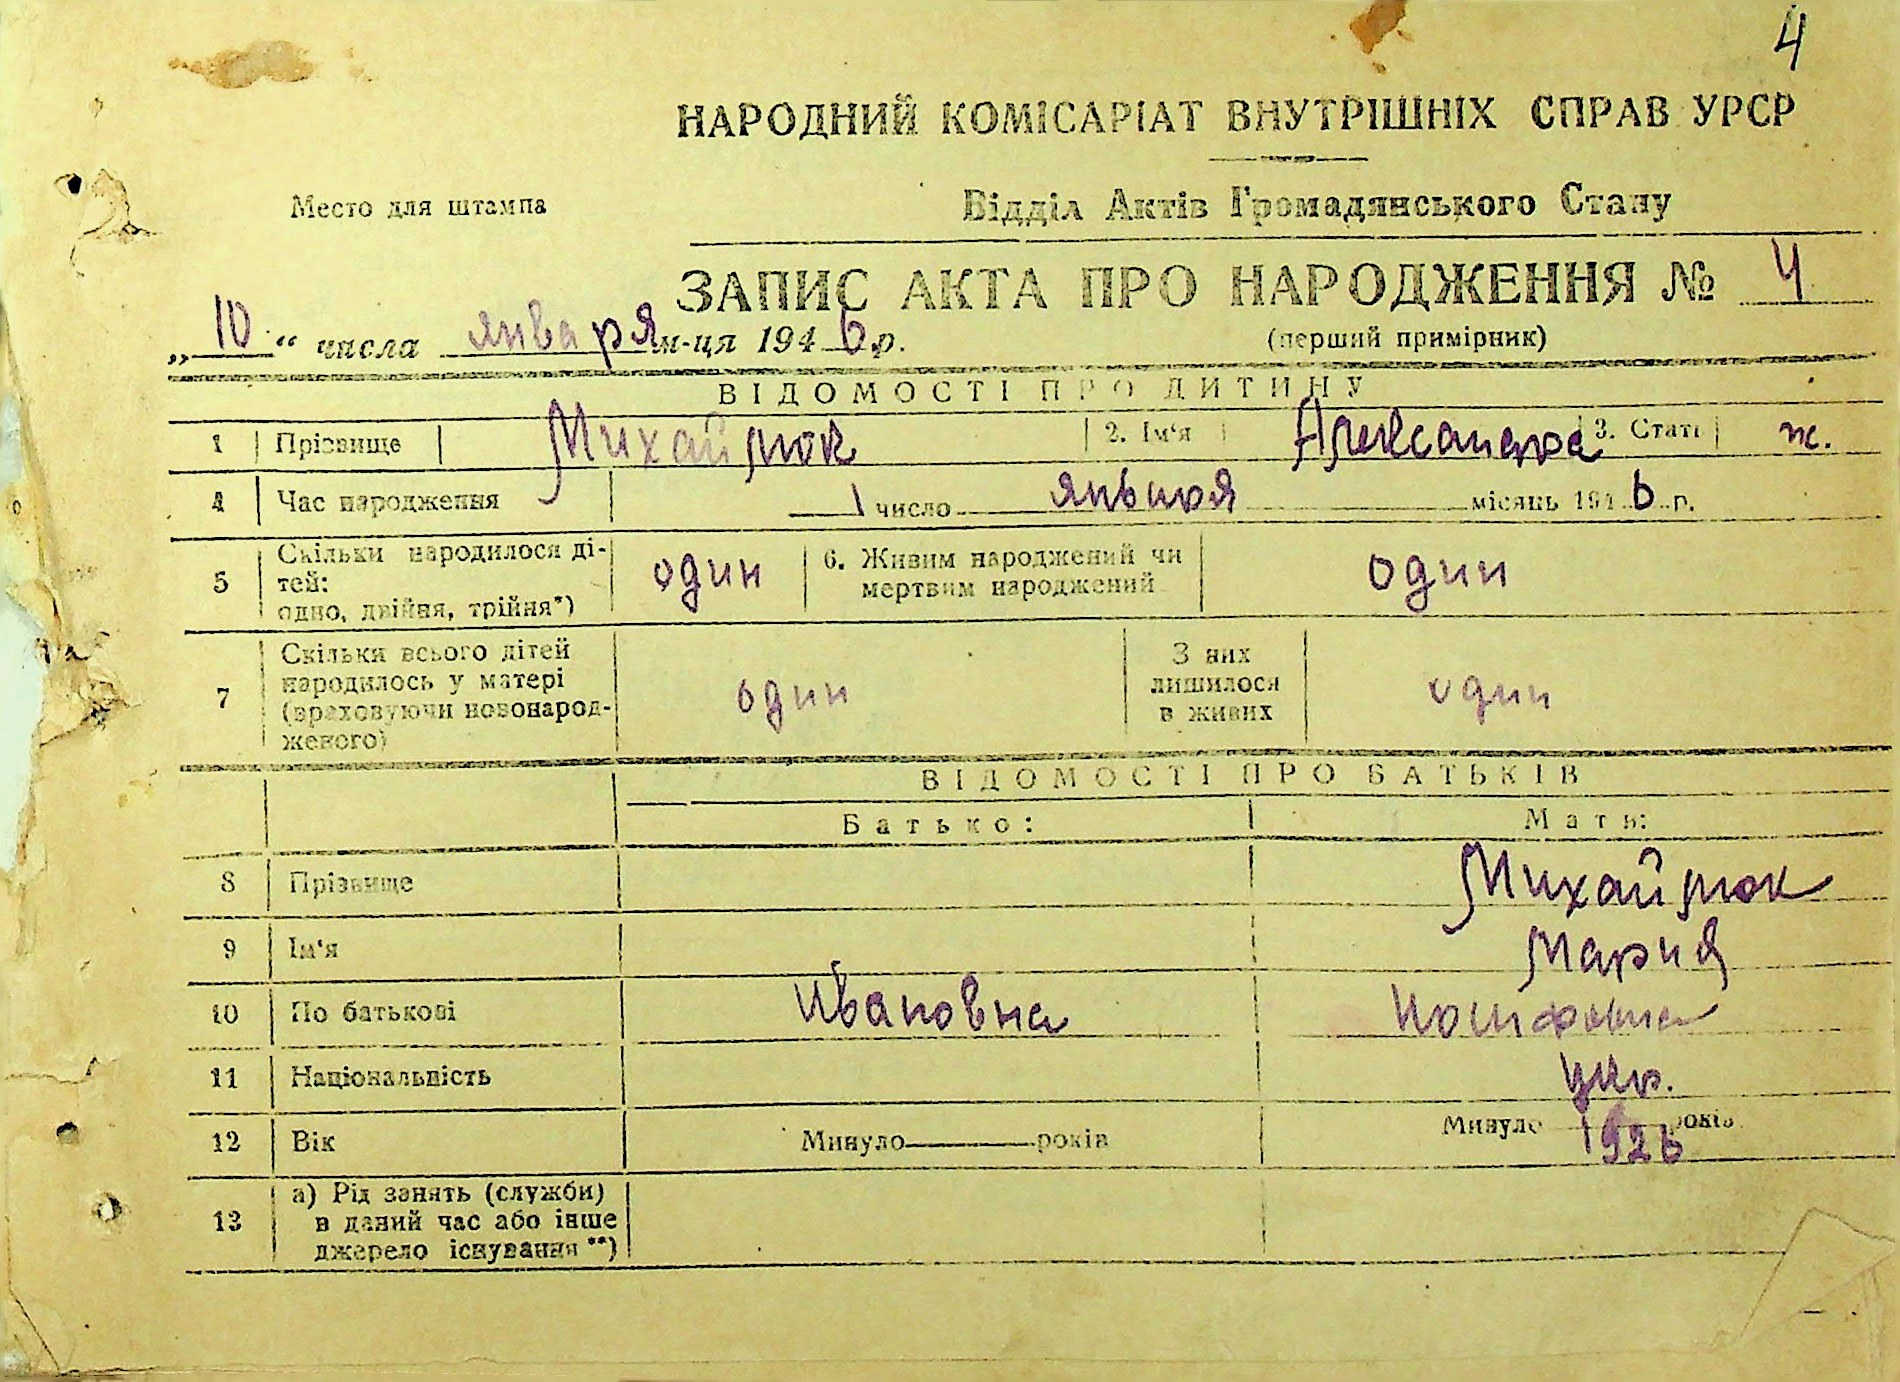 4
НАРОДНИЙ КОМІСАРІАТ ВНУТРІШНІХ СПРАВ УРСР
Место для штампа
Відділ Актів Громадянського Стану
ЗАПИС АКТА ПРО НАРОДЖЕННЯ № 4
„10“ числа января м-ця 1946 р.
(перший примірник)
ВІДОМОСТІ ПРО ДИТИНУ
1 Прізвище Михайлюк 2. Ім‘я Александра 3. Стать ж.
4 Час народження 1 число января місяць 1946 р.
5 Скільки народилося ді-
тей:
одно, двійня, трійня*) один 6. Живим народжений чи
мертвим народжений один
7 Скільки всього дітей
народилось у матері
(враховуючи новонарод-
женого) один З них
лишилося
в живих один
ВІДОМОСТІ ПРО БАТЬКІВ
Батько: Мати:
8 Прізвище Михайлюк
9 Ім‘я Мария
10 По батькові Ивановна
11 Національність укр.
12 Вік Минуло років Минуло 1926 років
13 а) Рід занять (служби)
в даний час або інше
джерело існування **)